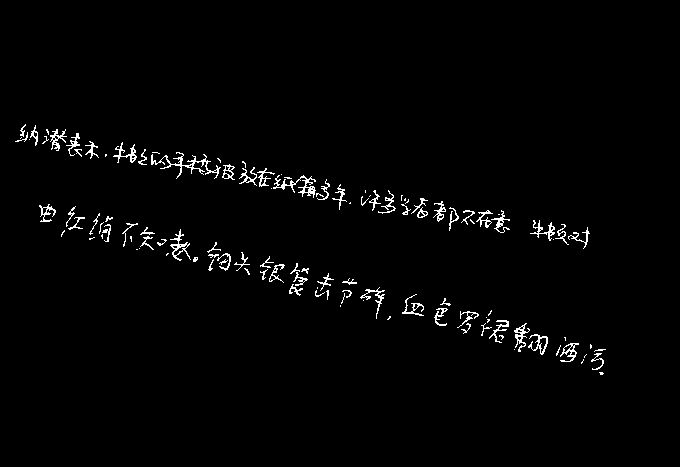 纳潜表示,牛顿的手稿被放在纸箱多年,许多学者都不在意 牛顿对
曲红绡不知数。钿头银篦击节碎,血色罗裙翻酒污,